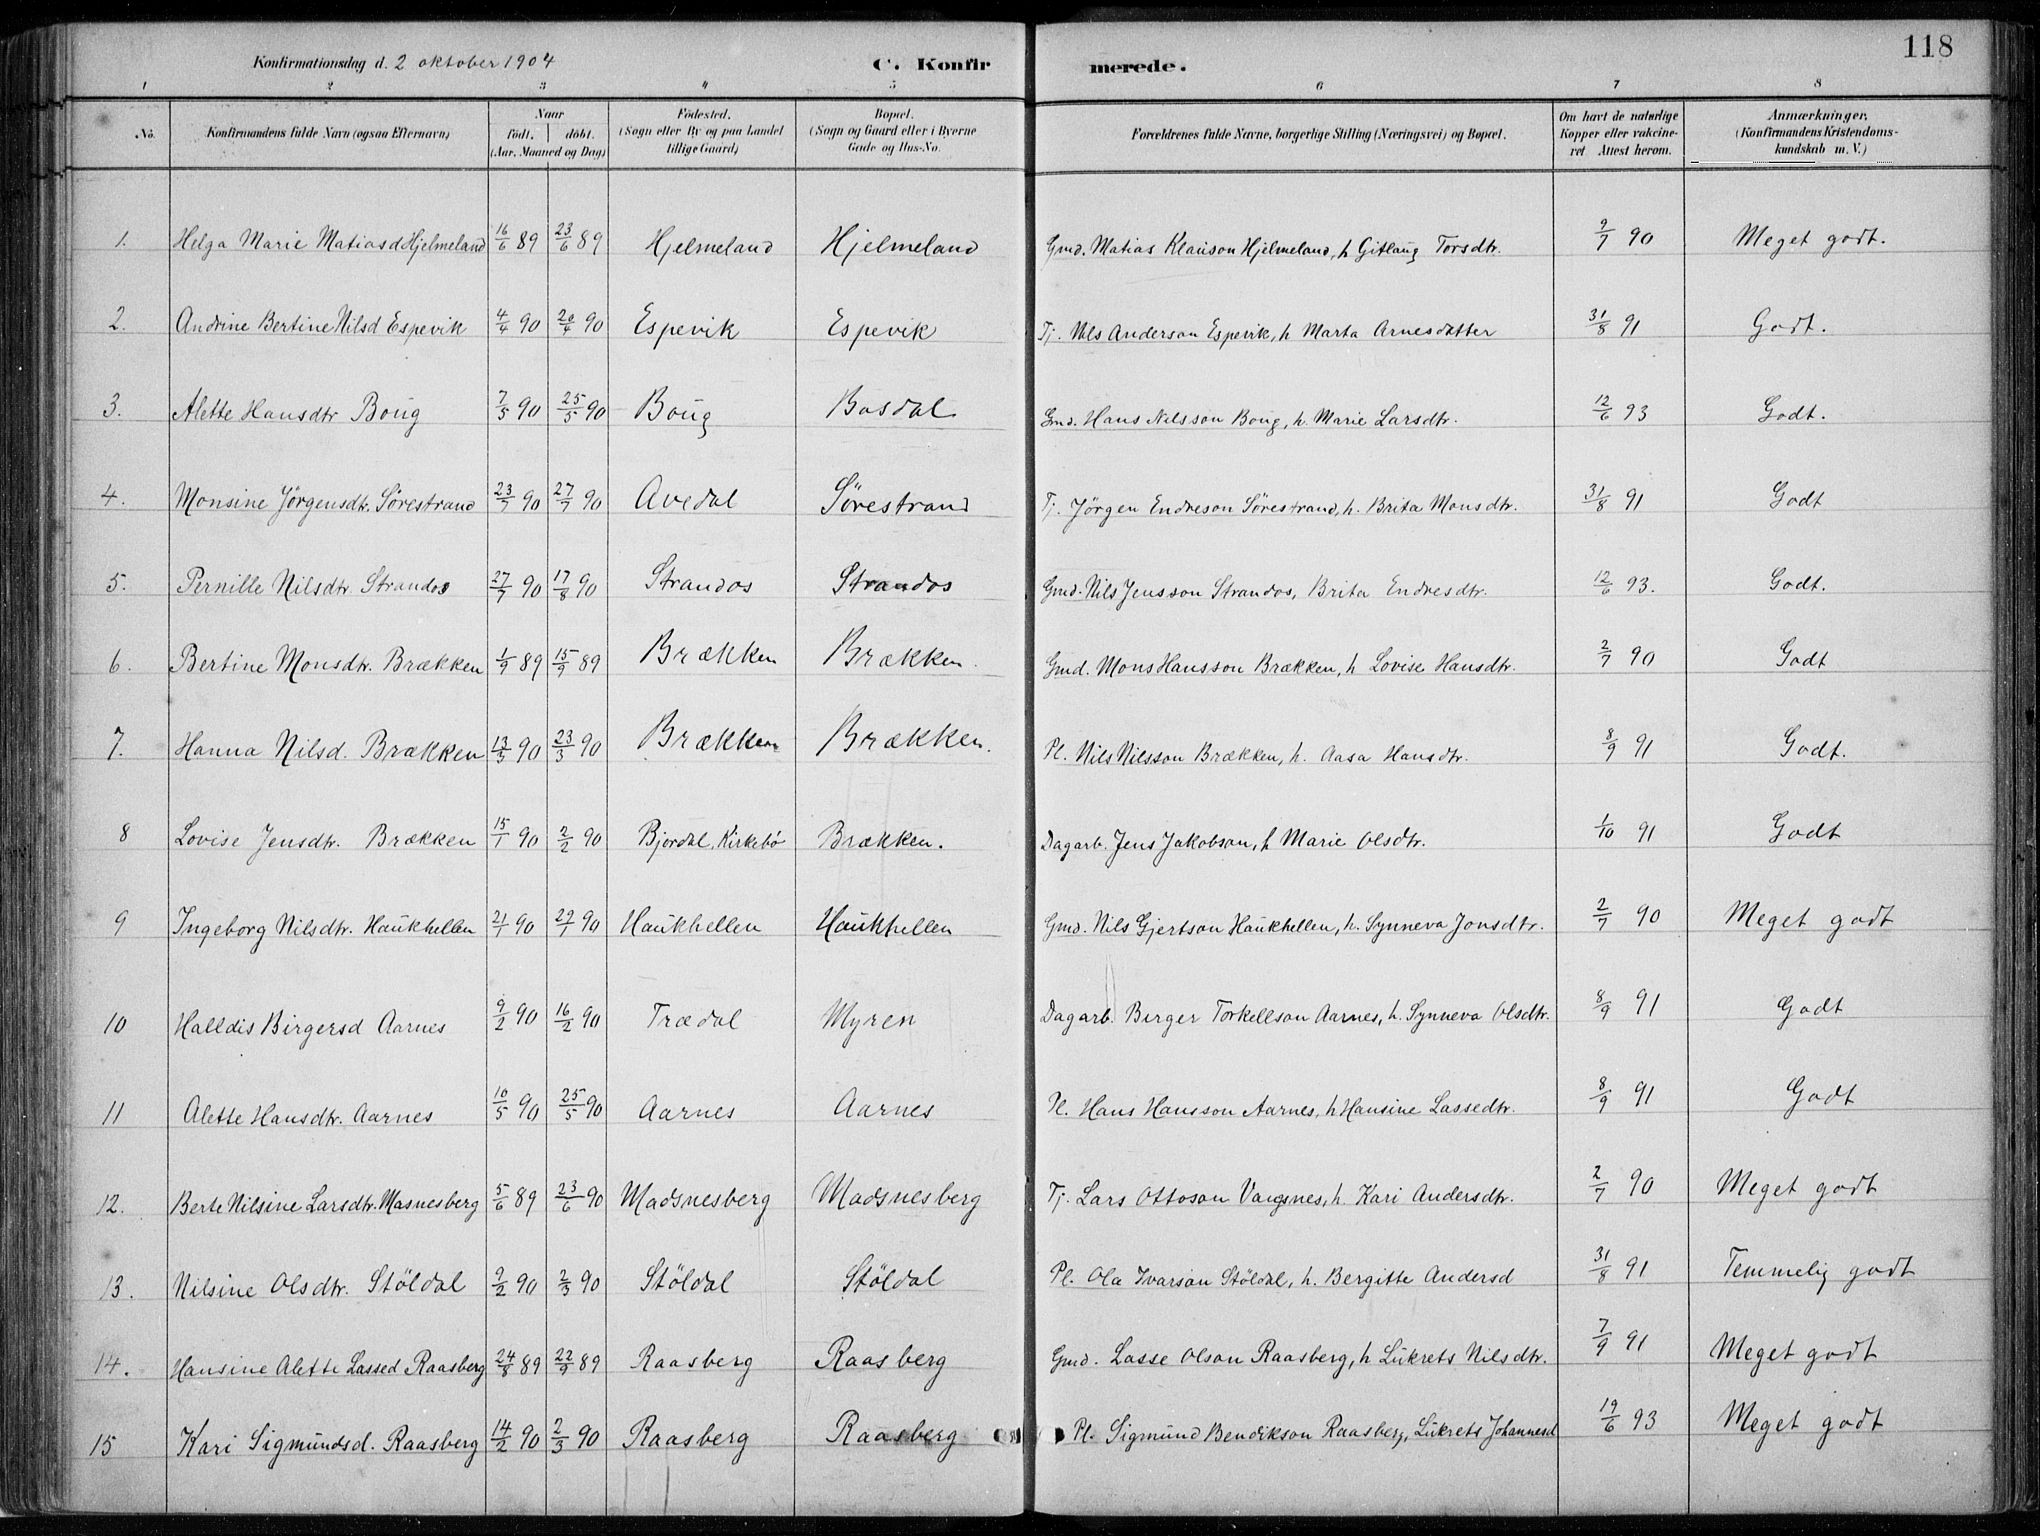 118
Konfirmationsdag d. 2 oktober 1904 C. Konfirmerede.
1 2 3 4 5 6 7 8
No. Konfirmandens fulde Navn (ogsaa Efternavn) Naar født. døbt. (Aar, Maaned og Dag) Fødested. (Sogn eller By og paa Landet tillige Gaard) Bopæl. (Sogn og Gaard eller i Byerne Gade og Hus-No. Forældrenes fulde Navne, borgerlige Stilling (Næringsvei) og Bopæl. Om havt de naturlige Kopper eller vakcineret Attest herom. Anmærkninger, (Konfirmandens Kristendomskundskab m. V.)
1. Helga Marie Matiasd Hjelmeland 16/6 89 23/6 89 Hjelmeland Hjelmeland Gmd. Matias Klauson Hjelmeland, h Gitlaug Torsdtr. 9/7 90 Meget godt.
2. Andrine Bertine Nilsd Espevik 4/4 90 20/4 90 Espevik Espevik Tj. Nils Anderson Espevik, h Marta Arnesdatter 31/8 91 Godt.
3. Alette Hansdtr Boug 7/5 90 25/5 90 Boug Bosdal Gmd. Hans Nilsson Boug, h. Marie Larsdtr. 12/6 93 Godt.
4. Monsine Jörgensdtr. Sörestrand 23/7 90 27/7 90 Avedal Sörestrand Tj. Jörgen Endreson Sörestrand, h. Brita Monsdtr. 31/8 91 Godt
5. Pernille Nilsdtr. Strandos 27/7 90 17/8 90 Strandos Strandos Gmd. Nils Jensson Strandos, Brita Endresdtr. 12/6 93. Godt.
6. Bertine Monsdtr. Brækken 1/9 89 15/9 89 Brækken Brækken. Gmd. Mons Hansson Brækken, h Lovise Hansdtr. 2/7 90 Godt
7. Hanna Nilsd. Brækken 13/3 90 23/3 90 Brækken Brækken. Pl. Nils Nilsson Brækken, h. Aasa Hansdtr. 8/9 91 Godt.
8 Lovise Jensdtr. Brækken 15/1 90 2/2 90 Bjordal, Kirkebø Brækken. Dagarb. Jens Jakobson, h Marie Olsdtr. 1/10 91 Godt
9 Ingeborg Nilsdtr. Haukhellen 21/7 90 27/7 90 Haukhellen Haukhellen Gmd. Nils Gjertson Haukhellen, h. Synneva Jonsdtr. 2/7 90 Meget godt
10 Halldis Birgersd Aarnes 9/2 90 16/2 90 Trædal Myren Dagarb. Birger Torkellson Aarnes, h. Synneva Olsdtr. 8/9 91 Godt
11 Alette Hansdtr. Aarnes 10/5 90 25/5 90 Aarnes Aarnes Pl. Hans Hansson Aarnes, h Hansine Lassedtr. 8/9 91 Godt
12. Berte Nilsine Larsdtr. Masnesberg 5/6 89 23/6 90 Madsnesberg Madsnesberg Tj. Lars Ottoson Vangsnes, h. Kari Andersdtr. 2/7 90 Meget godt
13. Nilsine Olsdtr. Stöldal 9/2 90 2/3 90 Stöldal Stöldal Pl. Ola Ivarson Stöldal, h. Bergitte Andersd 31/8 91 Temmelig godt
14. Hansine Alette Lassed Raasberg 24/8 89 22/9 89 Raasberg Raasberg Gmd. Lasse Olson Raasberg, h Lukrets Nilsdtr. 7/9 91 Meget godt
15 Kari Sigmundsd. Raasberg 14/2 90 2/3 90 Raasberg Raasberg Pl. Sigmund Bendikson Raasberg, Lukrets Johannesd 19/6 93 Meget godt